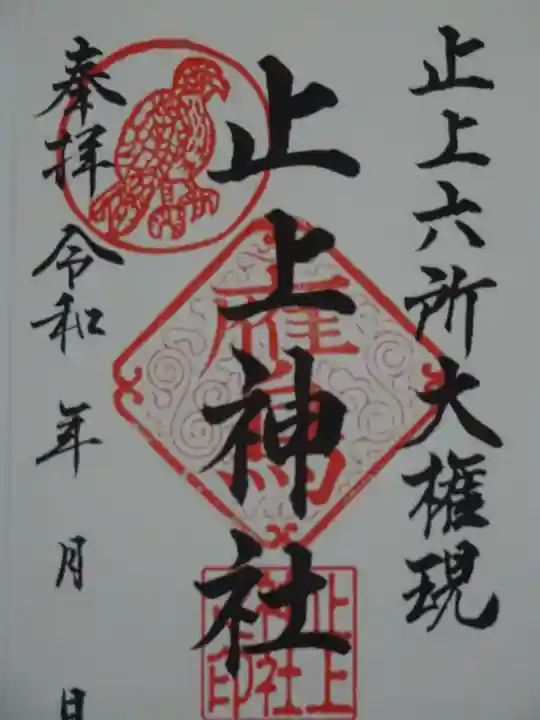 止上六所大権現
止上神社
奉拝 令和 年 月 日
鷹
止上神社之印